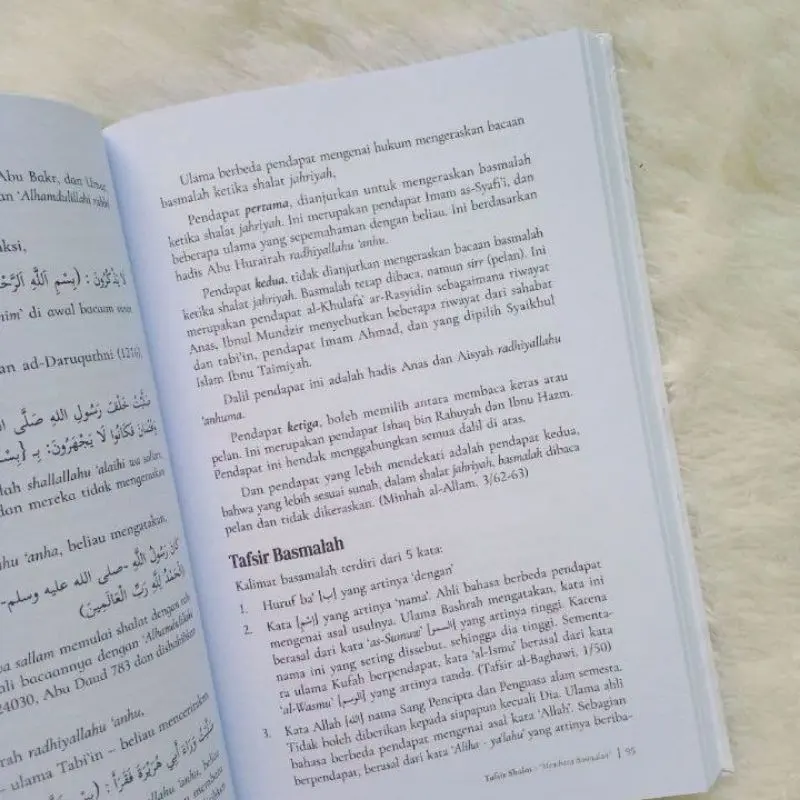 Abu Bakr, dan Umar,
an 'Alhamdulillahi rabbi
aksi,
لَا يَذْكُرُونَ : (بِسْمِ اللَّهِ الرَّحْ
im' di awal bacaan
an ad-Daruquthni
صَلَّيْتُ خَلْفَ رَسُولِ اللهِ صَلَّى
فَكَانُوا لَا يَجْهَرُونَ: بِـ
lah shallallahu 'alaihi wa sallam,
dan mereka tidak mengeraskan
hu 'anha, beliau mengatakan,
كَانَ رَسُولُ اللهِ -صلى الله عليه وسلم-
(الْحَمْدُ لِلَّهِ رَبِّ الْعَالَمِينَ)
wa sallam memulai shalat dengan
ali bacaannya dengan 'Alhamdulillahi
24030, Abu Daud 783 dan dishahihkan
rah radhiyallahu 'anhu,
– ulama Tabi'in – beliau menceritakan
صَلَّيْتُ وَرَاءَ أَبِي هُرَيْرَةَ فَقَرَأَ :
'anhu, beliau
Ulama berbeda pendapat mengenai hukum mengeraskan bacaan
basmalah ketika shalat jahriyah,
Pendapat pertama, dianjurkan untuk mengeraskan basmalah
ketika shalat jahriyah. Ini merupakan pendapat Imam as-Syafi'i, dan
beberapa ulama yang sepemahaman dengan beliau. Ini berdasarkan
hadis Abu Hurairah radhiyallahu 'anhu.
Pendapat kedua, tidak dianjurkan mengeraskan bacaan basmalah
ketika shalat jahriyah. Basmalah tetap dibaca, namun sirr (pelan). Ini
merupakan pendapat al-Khulafa' ar-Rasyidin sebagaimana riwayat
Anas, Ibnul Mundzir menyebutkan beberapa riwayat dari sahabat
dan tabi'in, pendapat Imam Ahmad, dan yang dipilih Syaikhul
Islam Ibnu Taimiyah.
Dalil pendapat ini adalah hadis Anas dan Aisyah radhiyallahu
'anhuma.
Pendapat ketiga, boleh memilih antara membaca keras atau
pelan. Ini merupakan pendapat Ishaq bin Rahuyah dan Ibnu Hazm.
Pendapat ini hendak menggabungkan semua dalil di atas.
Dan pendapat yang lebih mendekati adalah pendapat kedua,
bahwa yang lebih sesuai sunah, dalam shalat jahriyah, basmalah dibaca
pelan dan tidak dikeraskan. (Minhah al-Allam, 3/62-63)
Tafsir Basmalah
Kalimat basamalah terdiri dari 5 kata:
1. Huruf ba' [بـ] yang artinya 'dengan'
2. Kata [اسْم] yang artinya 'nama'. Ahli bahasa berbeda pendapat
mengenai asal usulnya. Ulama Bashrah mengatakan, kata ini
berasal dari kata 'as-Sumuw' [السمو] yang artinya tinggi. Karena
nama ini yang sering dissebut, sehingga dia tinggi. Sementa-
ra ulama Kufah berpendapat, kata 'al-Ismu' berasal dari kata
'al-Wasmu' [الوسم] yang artinya tanda. (Tafsir al-Baghawi, 1/50)
3. Kata Allah [الله] nama Sang Pencipta dan Penguasa alam semesta.
Tidak boleh diberikan kepada siapapun kecuali Dia. Ulama ahli
bahasa berbeda pendapat mengenai asal kata 'Allah'. Sebagian
berpendapat, berasal dari kata 'Aliha - ya'lahu' yang artinya beriba-
Tafsir Shalat - "Membaca Basmalah" | 95